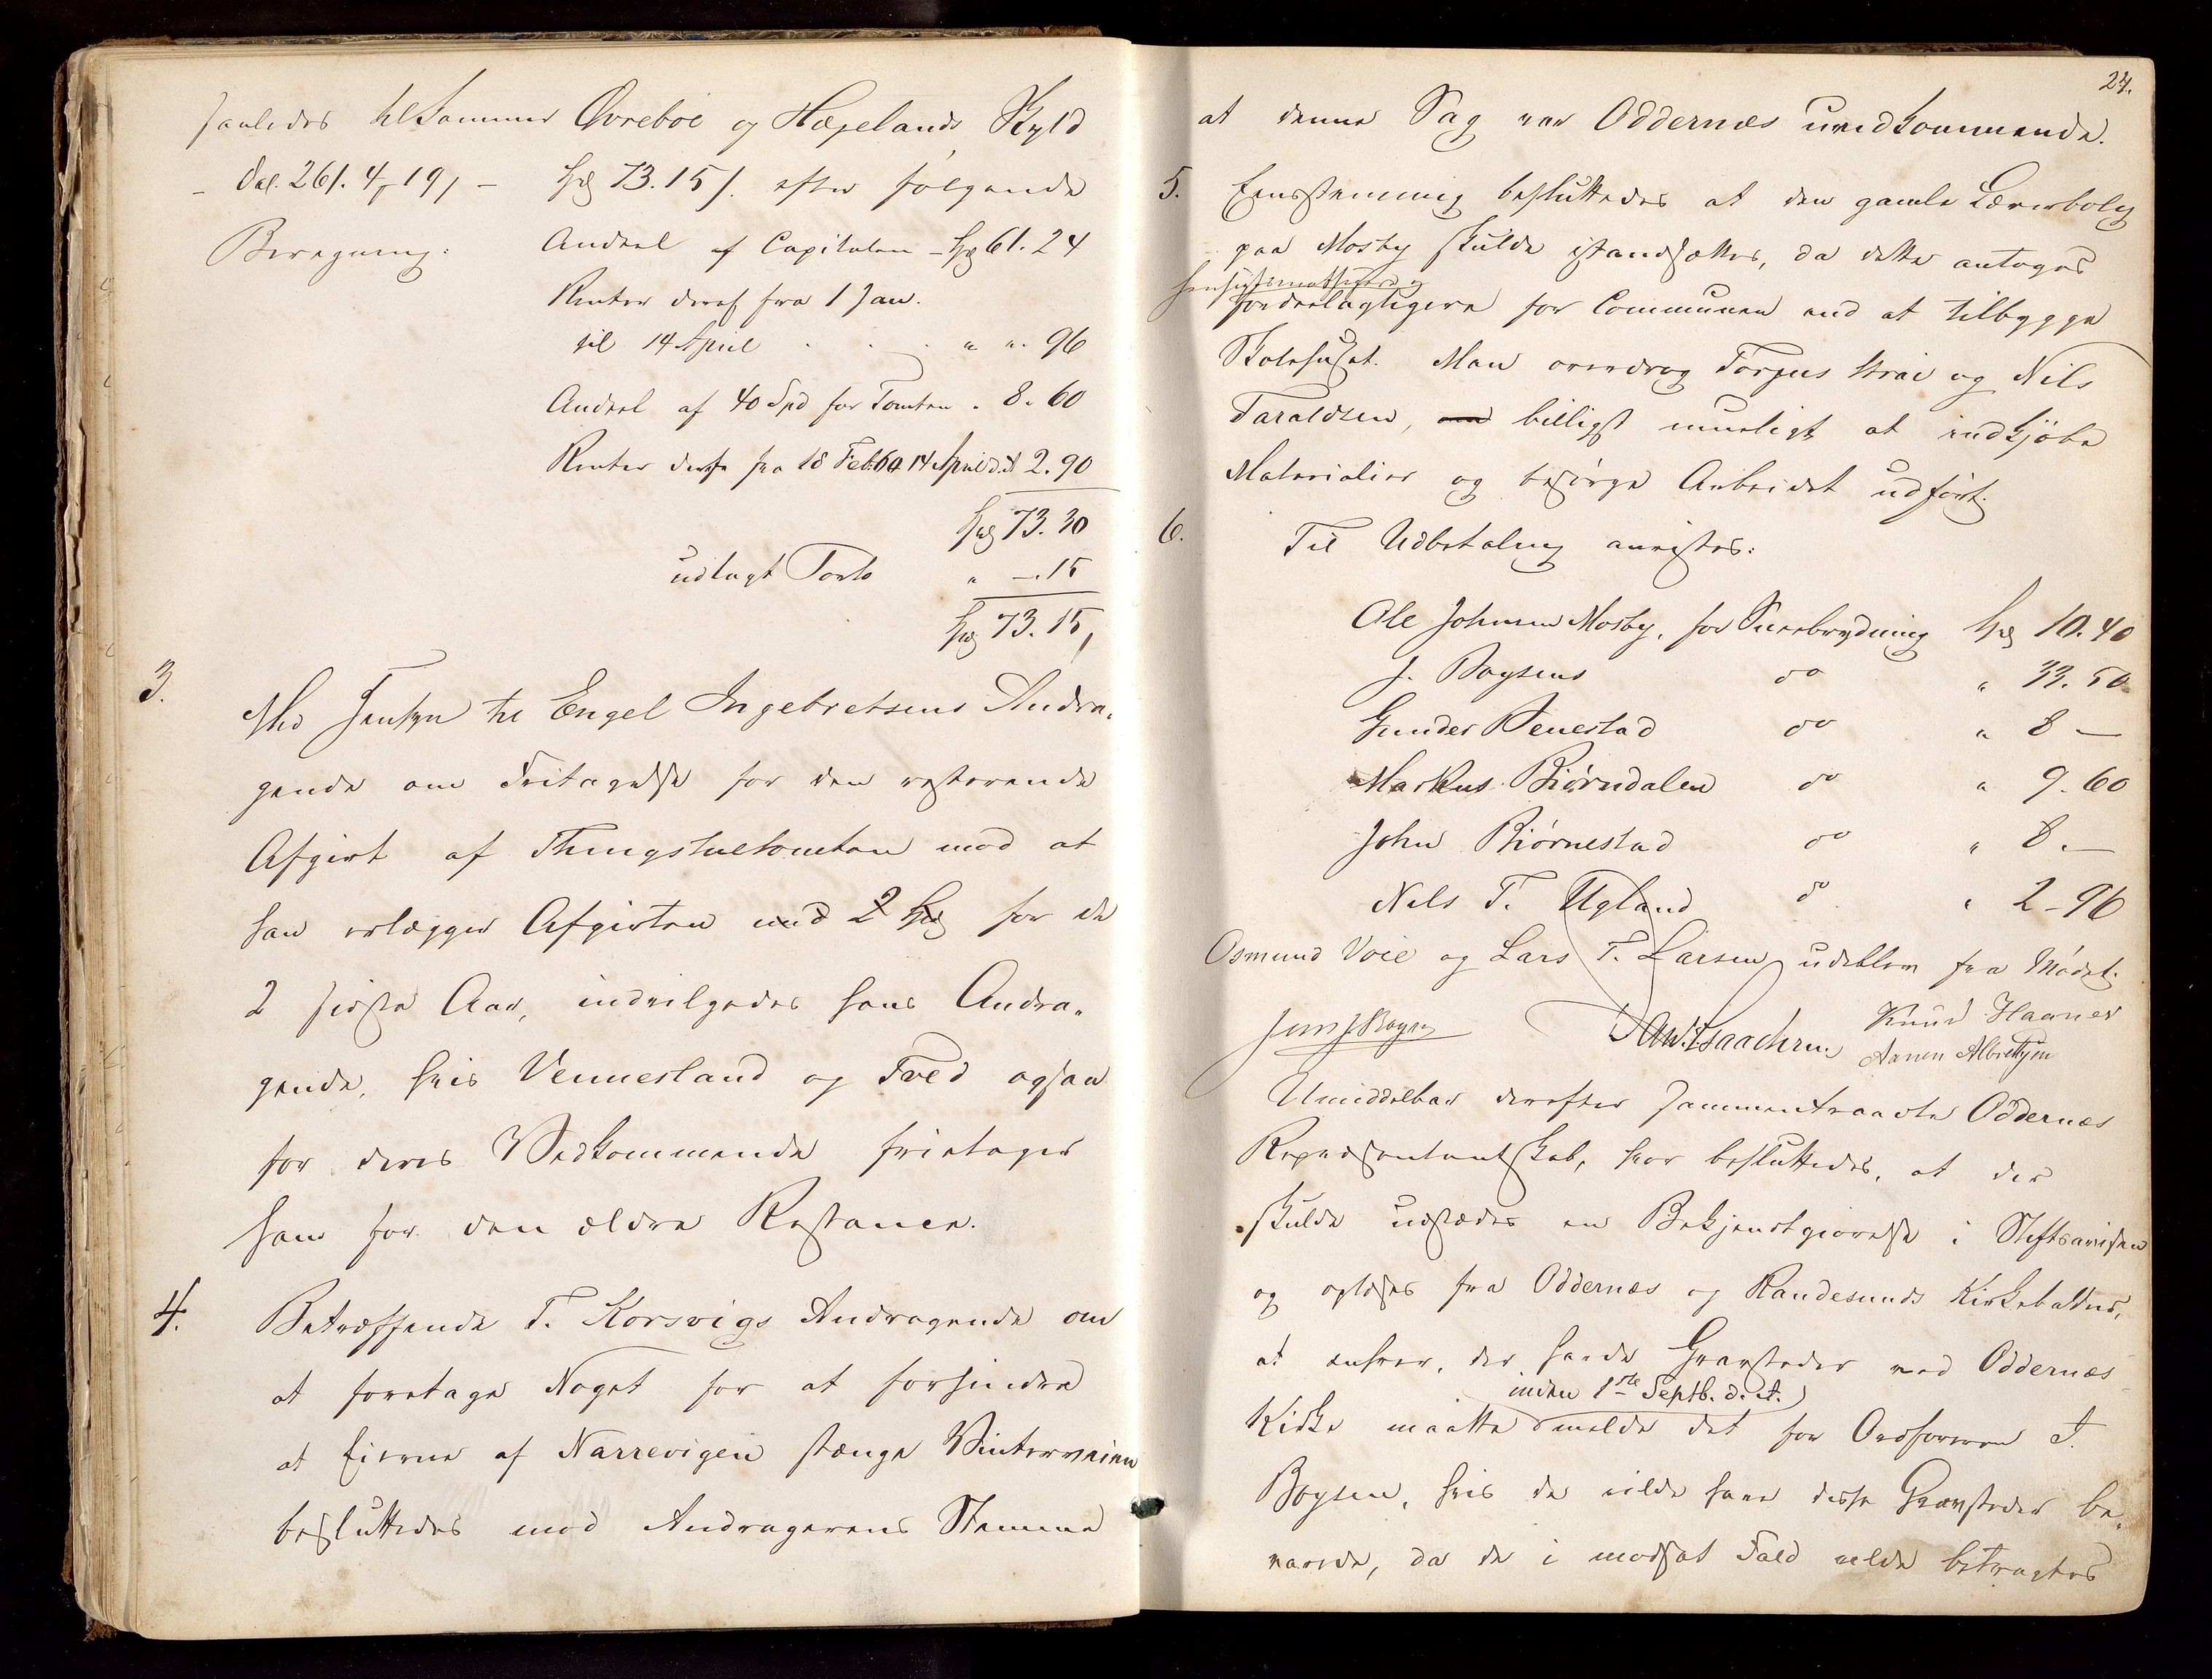 saaledes tilkommer Øvrebøe og Hægelands Skyld
– Dal. 261. 4, 19, – Spd 73. 15 s. efter følgende
Beregning: Andeel af Capitalen – Spd 61. 24
Renter deraf fra 1 Jan.
til 14 April . . . " ". 96
Andeel af 40 Spd for Tomten . 8. 60
Renter deraf fra 18 Feb. 60 14 April d.A. 2. 90
Spd 73. 30
udlagt Porto " –. 15
Spd 73. 15,
3. Med Hensyn til Engel Ingebretsens Andra-
gende om Fritagelse for den resterende
Afgivt af Thingstuetomten mod at
han erlægger Afgivten med 2 Spd for de
2 sidste Aar, indvilgedes hans Andra-
gende, hvis Vennesland og Tved ogsaa
for deres Vedkommende fritager
ham for den ældre Restance.
4. Betræffende T. Korsvigs Andragende om
at foretage Noget for at forhindre
at Eierne af Narrevigen stænge Vinterveien
besluttedes mod Andragerens Stemme
24.
at denne Sag var Oddernæs uvedkommende.
5. Eensstemmig besluttedes at den gamle Lærerbolig
paa Mosby skulde istandsættes, da dette antoges
hensigtsmæssigere og
fordeelagtigere for Communen end at tilbygge
Skolehuset. Man overdrog Torjus Strai og Nils
Taraldsen, billigst mueligt at indkjøbe
Materialier og besørge Arbeidet udført.
6. Til Udbetaling anvistes:
Ole Johnsen Mosby, for Sneebrydning Spd 10. 40
J. Boysens do " 33. 50
Gunder Benestad do " 8 –
Markus Biørndalen do " 9. 60
John Biørnestad do " 8. –
Nils T. Ugland do " 2 – 96
Osmund Voie og Lars T. Larsen udeblev fra Mødet.
Jens J Boysen D. Isaachsen. Knud Haanes
Aanen Albretsen
Umiddelbar derefter sammentraadte Oddernæs
Repræsentantskab, hvor besluttedes, at der
skulde udstædes en Bekjendtgiørelse i Stiftsavisen
og oplæses fra Oddernæs og Randesunds Kirkebakker,
at enhver, der havde Gravsteder ved Oddernæs
inden 1ste Septb. d. A.
Kirke maatte melde det for Ordføreren J.
Boysen, hvis de vilde have disse Gravsteder be-
varede, da de i modsat Fald vilde betragtes